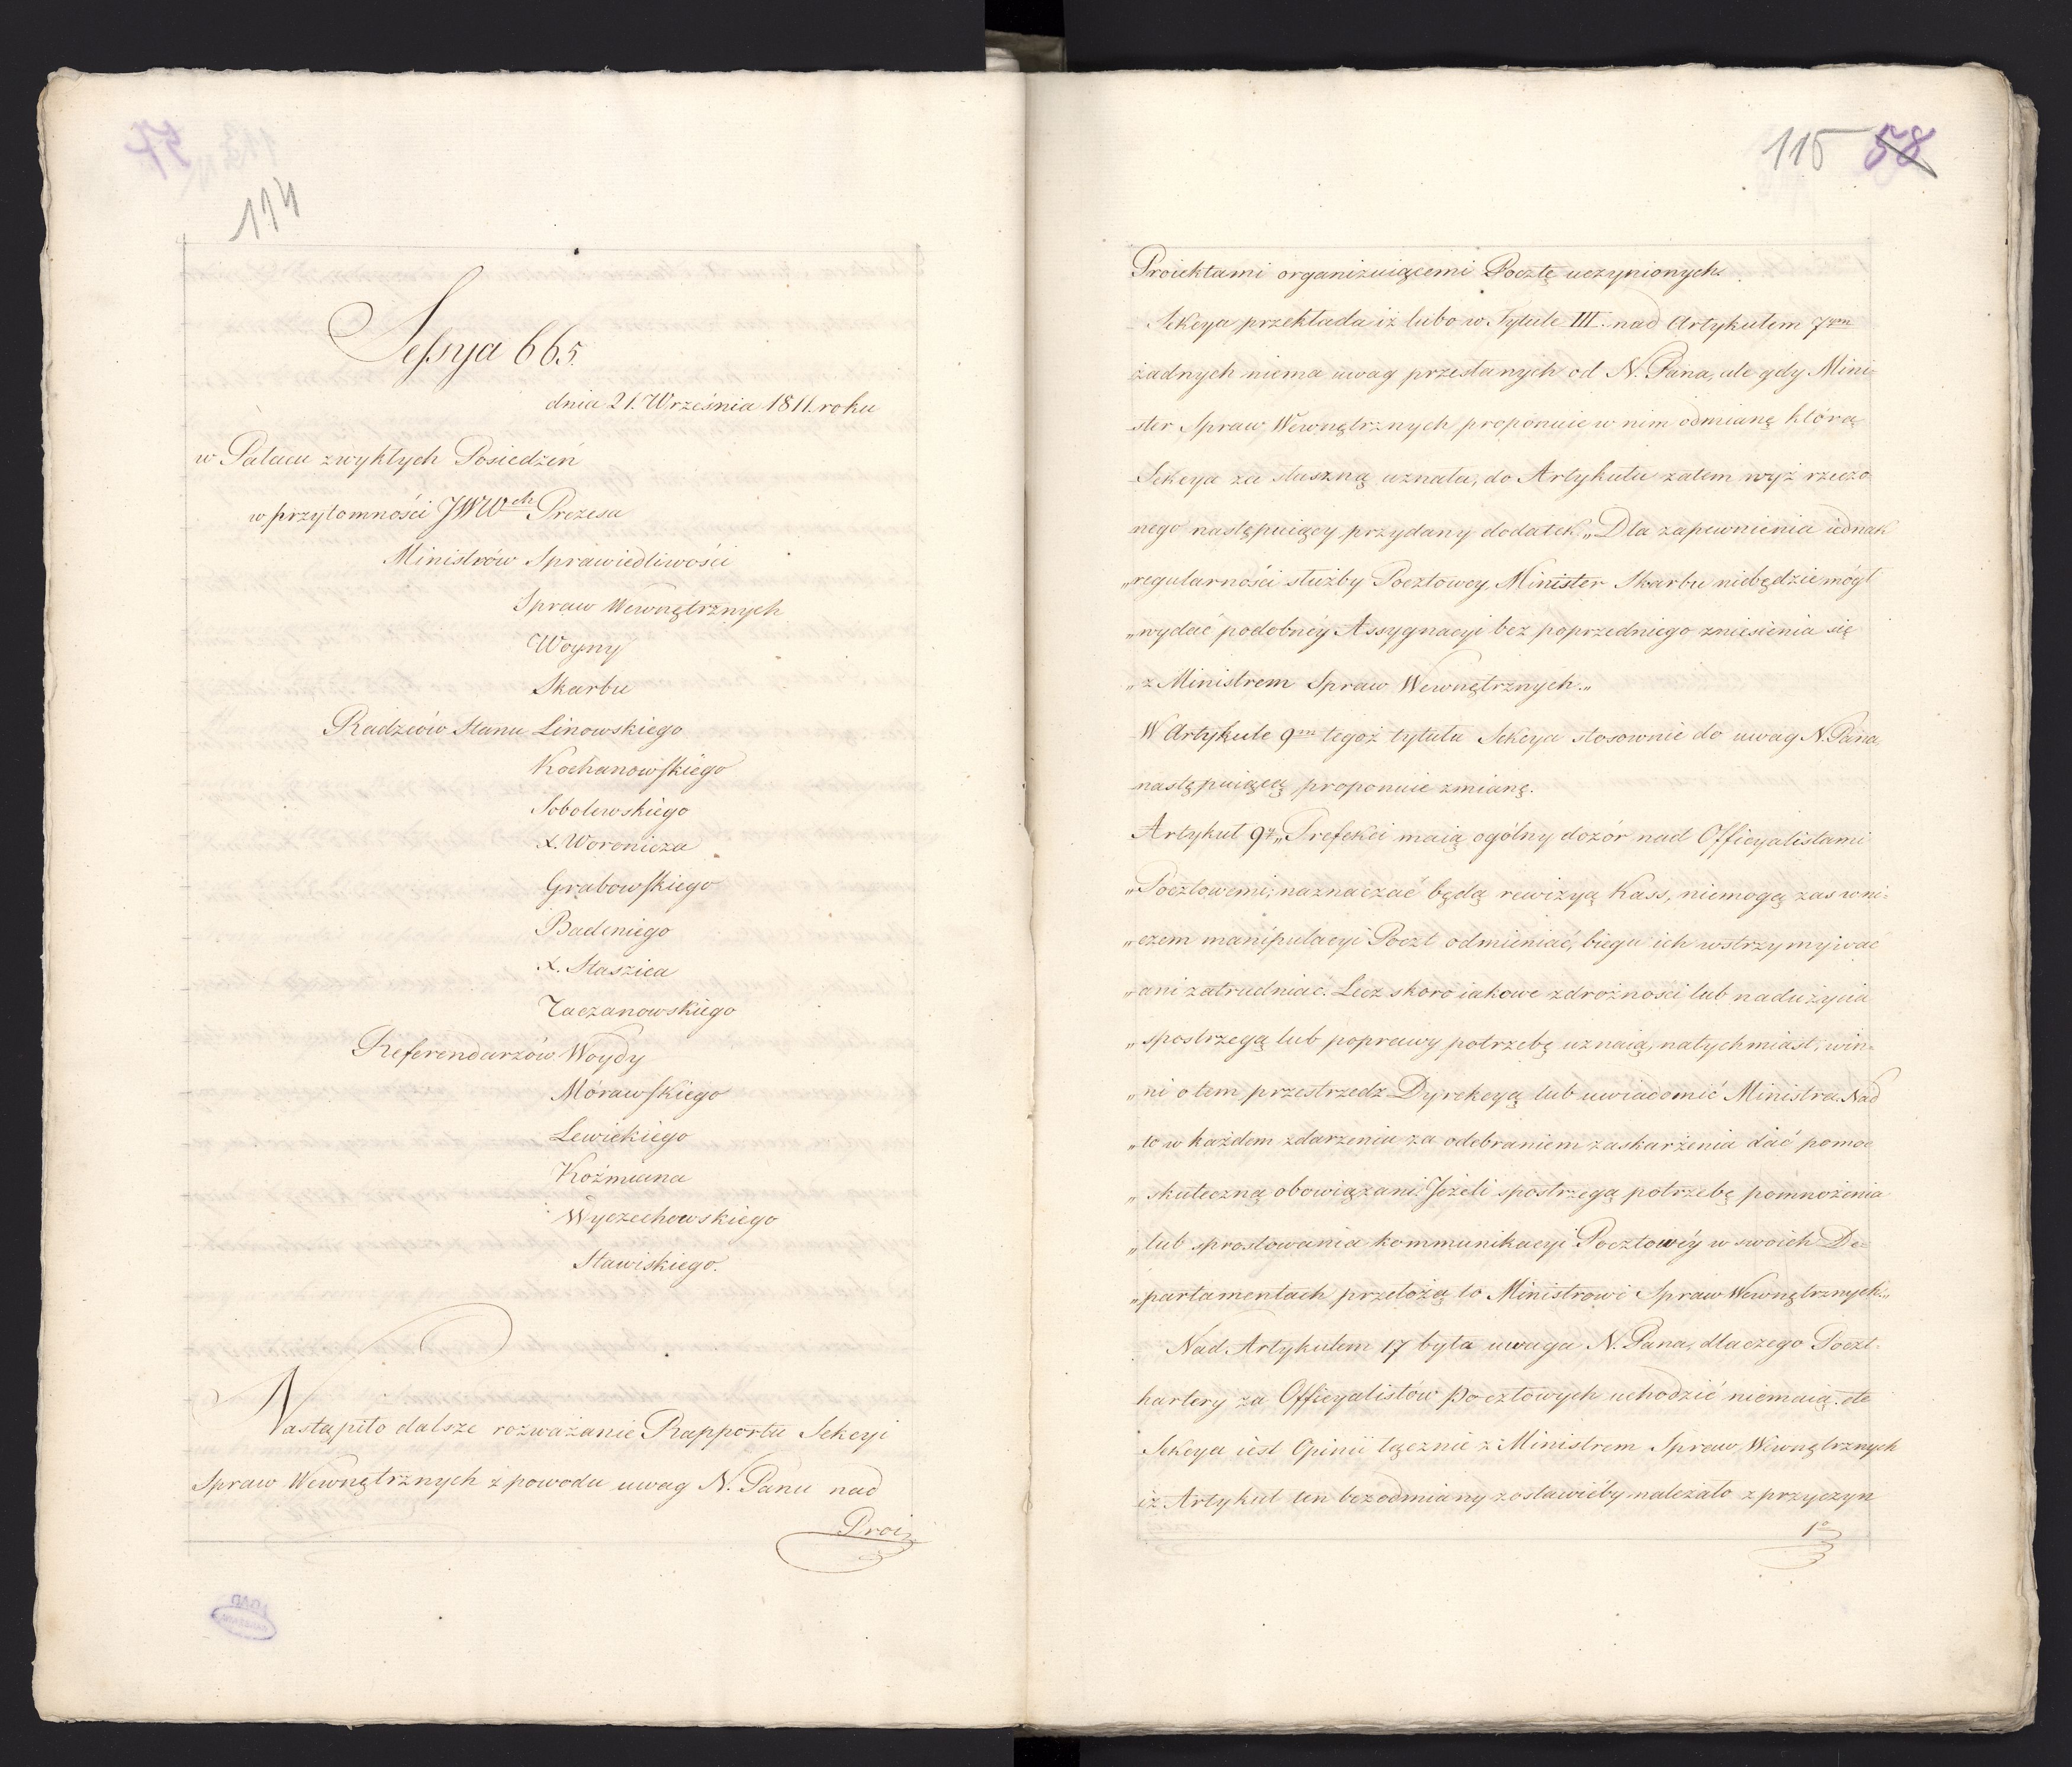 114
Sessya 665.
dnia 21. Września 1811. roku
w Pałacu zwykłych Posiedzeń
w przytomności JWW^ch Prezesa
Ministrów Sprawiedliwości
Spraw Wewnętrznych
Woyny
Skarbu
Radzców Stanu Linowskiego
Kochanowskiego
Sobolewskiego
X. Woronicza
Grabowskiego
Badeniego
X. Staszica
Zaczanowskiego
Referendarzów Woydy
Morawskiego
Lewickiego
Koźmiana
Wyczechowskiego
Stawiskiego.
Nastąpiło dalsze rozważanie Rapportu Sekcyi
Spraw Wewnętrznych z powodu uwag N. Pana nad
Proi
115 58
Proiektami organizuiącemi Pocztę uczynionych.
Sekcya przekłada iż lubo w Tytule III. nad Artykułem 7^ym
żadnych niema uwag przesłanych od N. Pana, ale gdy Mini=
ster Spraw Wewnętrznych proponuie w nim odmianę którą
Sekcya za słuszną uznała, do Artykułu zatem wyż rzeczo
nego następuiący przydany dodatek „Dla zapewnienia iednak
„regularności służby Pocztowey, Minister Skarbu niebędzie mógł
„wydać podobney Assygnacyi bez poprzedniego zniesienia się
„z Ministrem Spraw Wewnętrznych.„
W Artykule 9^m tegoż tytułu Sekcya stosownie do uwag N. Pana,
następuiącą proponuie zmianę.
Artykuł 9ty „Prefekci maią ogólny dozór nad Officyalistami
„Pocztowemi; naznaczać będą rewizyą Kass, niemogą zaś w ni=
„czem manipulacyi Poczt odmieniać, biegu ich wstrzymywać
„ani zatrudniać. Lecz skoro iakowe zdrożności lub nadużycia
„spostrzegą lub poprawy potrzebę uznaią, natychmiast, win=
„ni o tem przestrzedz Dyrekcyą lub uwiadomić Ministra. Nad
„to w każdem zdarzeniu za odebraniem zaskarżenia dać pomoc
„skuteczną obowiązani. Jeżeli spostrzegą potrzebę pomnożenia
„lub sprostowania kommunikacyi Pocztowéy w swoich De=
„partamentach przełożą to Ministrowi Spraw Wewnętrznych.„
Nad Artykułem 17 była uwaga N. Pana, dlaczego Poczt-
hartery za Officyalistów Pocztowych uchodzić niemaią. ale
Sekcya iest Opinii łącznie z Ministrem Spraw Wewnętrznych
iż Artykuł ten bez odmiany zostawićby należało z przyczyn
1^o